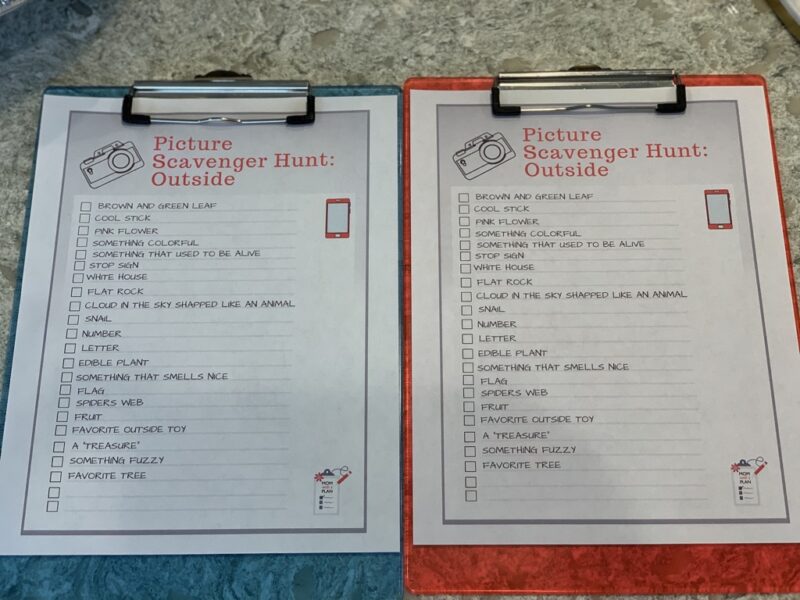 Picture
Scavenger Hunt:
Outside
BROWN AND GREEN LEAF
COOL STICK
PINK FLOWER
SOMETHING COLORFUL
SOMETHING THAT USED TO BE ALIVE
STOP SIGN
WHITE HOUSE
FLAT ROCK
CLOUD IN THE SKY SHAPPED LIKE AN ANIMAL
SNAIL
NUMBER
LETTER
EDIBLE PLANT
SOMETHING THAT SMELLS NICE
FLAG
SPIDERS WEB
FRUIT
FAVORITE OUTSIDE TOY
A "TREASURE"
SOMETHING FUZZY
FAVORITE TREE
MOM
WITH A
PLAN
Picture
Scavenger Hunt:
Outside
BROWN AND GREEN LEAF
COOL STICK
PINK FLOWER
SOMETHING COLORFUL
SOMETHING THAT USED TO BE ALIVE
STOP SIGN
WHITE HOUSE
FLAT ROCK
CLOUD IN THE SKY SHAPPED LIKE AN ANIMAL
SNAIL
NUMBER
LETTER
EDIBLE PLANT
SOMETHING THAT SMELLS NICE
FLAG
SPIDERS WEB
FRUIT
FAVORITE OUTSIDE TOY
A "TREASURE"
SOMETHING FUZZY
FAVORITE TREE
MOM
WITH A
PLAN